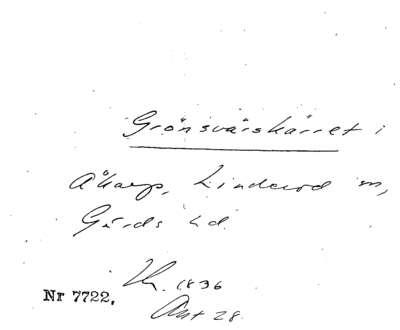 Grönsvärskärret i
Åkarp, Linderod sn,
Gärds hd.
Nr 7722.
1836
Ant 28.